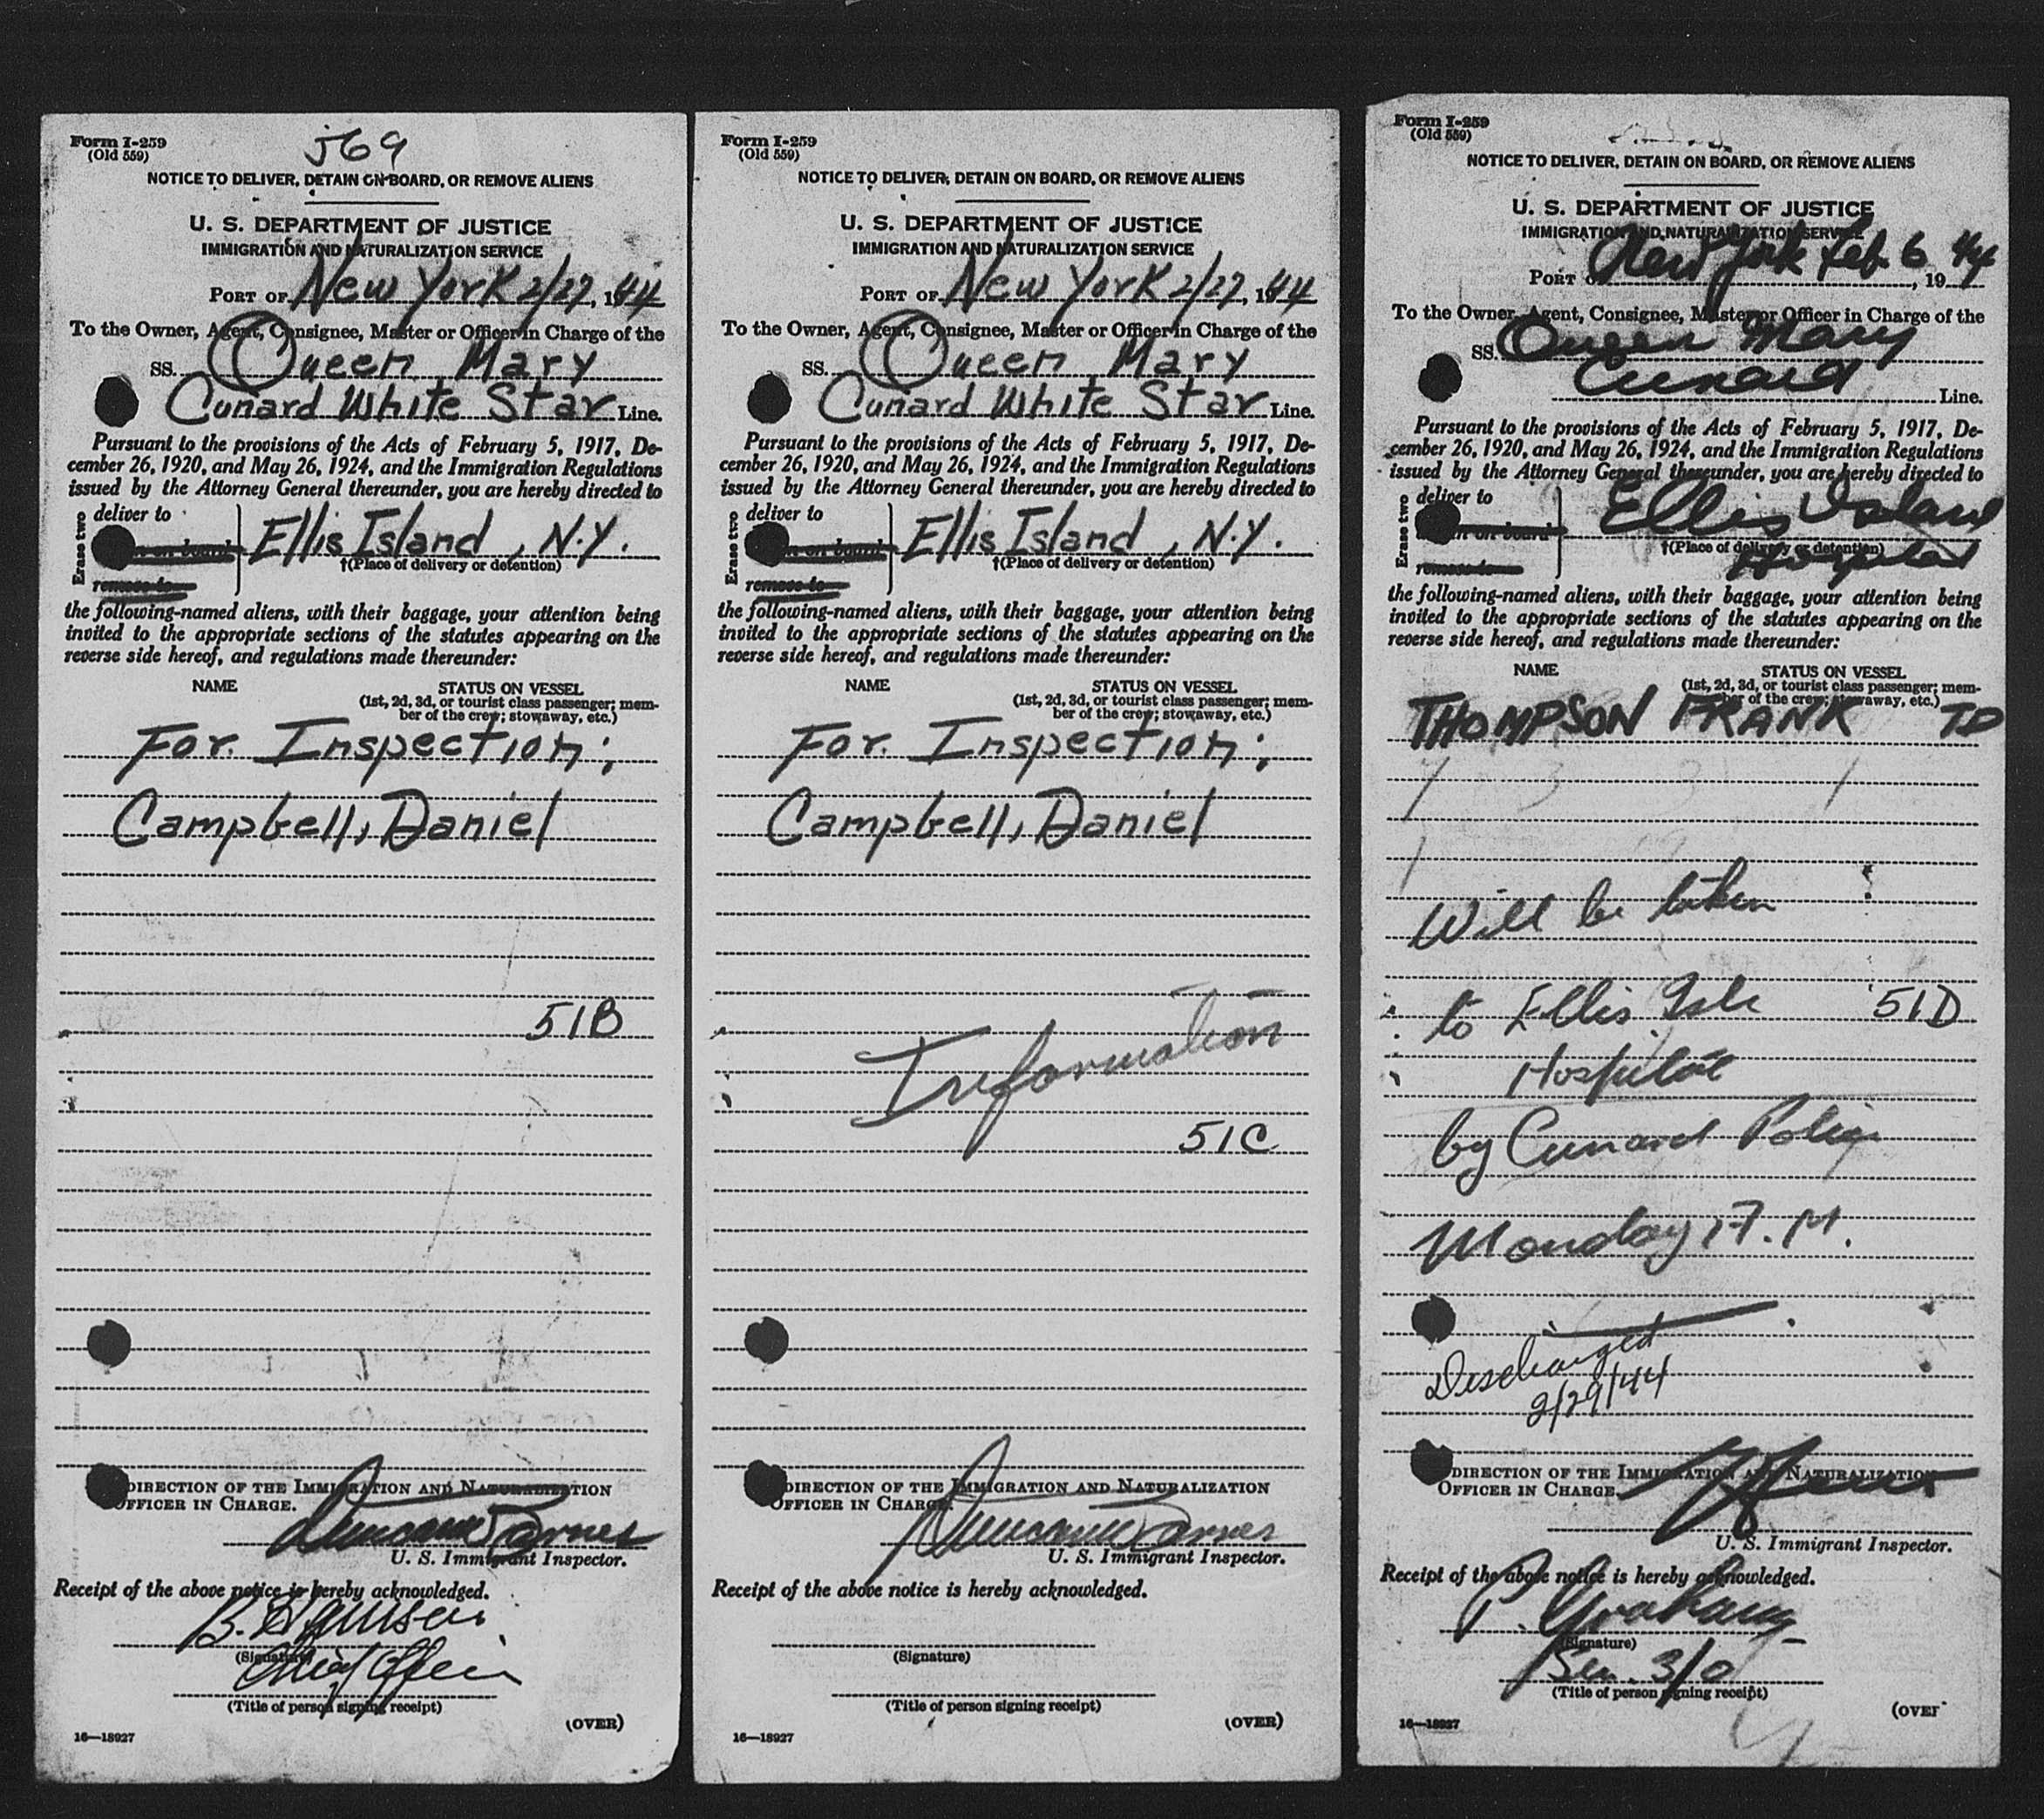 Form I-259
(Old 559)
569
NOTICE TO DELIVER, DETAIN ON BOARD, OR REMOVE ALIENS
U. S. DEPARTMENT OF JUSTICE
IMMIGRATION AND NATURALIZATION SERVICE
PORT OF New York 2/27, 1944
To the Owner, Agent, Consignee, Master or Officer in Charge of the
SS. Queen Mary
Cunard White Star Line.
Pursuant to the provisions of the Acts of February 5, 1917, De-
cember 26, 1920, and May 26, 1924, and the Immigration Regulations
issued by the Attorney General thereunder, you are hereby directed to
Erase two
deliver to
on board
remove to
Ellis Island, N.Y.
†(Place of delivery or detention)
the following-named aliens, with their baggage, your attention being
invited to the appropriate sections of the statutes appearing on the
reverse side hereof, and regulations made thereunder:
NAME STATUS ON VESSEL
(1st, 2d, 3d, or tourist class passenger; mem-
ber of the crew; stowaway, etc.)
For Inspection;
Campbell, Daniel
51B
DIRECTION OF THE IMMIGRATION AND NATURALIZATION
OFFICER IN CHARGE.
U. S. Immigrant Inspector.
Receipt of the above notice is hereby acknowledged.
B.
(Signature)
Chief Officer
(Title of person signing receipt)
(OVER)
16—18927
Form I-259
(Old 559)
NOTICE TO DELIVER, DETAIN ON BOARD, OR REMOVE ALIENS
U. S. DEPARTMENT OF JUSTICE
IMMIGRATION AND NATURALIZATION SERVICE
PORT OF New York 2/27, 1944
To the Owner, Agent, Consignee, Master or Officer in Charge of the
SS. Queen Mary
Cunard White Star Line.
Pursuant to the provisions of the Acts of February 5, 1917, De-
cember 26, 1920, and May 26, 1924, and the Immigration Regulations
issued by the Attorney General thereunder, you are hereby directed to
Erase two
deliver to
on board
remove to
Ellis Island, N.Y.
†(Place of delivery or detention)
the following-named aliens, with their baggage, your attention being
invited to the appropriate sections of the statutes appearing on the
reverse side hereof, and regulations made thereunder:
NAME STATUS ON VESSEL
(1st, 2d, 3d, or tourist class passenger; mem-
ber of the crew; stowaway, etc.)
For Inspection;
Campbell, Daniel
Information
51C
DIRECTION OF THE IMMIGRATION AND NATURALIZATION
OFFICER IN CHARGE.
U. S. Immigrant Inspector.
Receipt of the above notice is hereby acknowledged.
(Signature)
(Title of person signing receipt)
(OVER)
16—18927
Form I-259
(Old 559)
NOTICE TO DELIVER, DETAIN ON BOARD, OR REMOVE ALIENS
U. S. DEPARTMENT OF JUSTICE
IMMIGRATION AND NATURALIZATION SERVICE
PORT OF New York Feb 6, 1944
To the Owner, Agent, Consignee, Master or Officer in Charge of the
SS. Queen Mary
Cunard Line.
Pursuant to the provisions of the Acts of February 5, 1917, De-
cember 26, 1920, and May 26, 1924, and the Immigration Regulations
issued by the Attorney General thereunder, you are hereby directed to
Erase two
deliver to
on board
remove to
Ellis Island
†(Place of delivery or detention)
Hospital
the following-named aliens, with their baggage, your attention being
invited to the appropriate sections of the statutes appearing on the
reverse side hereof, and regulations made thereunder:
NAME STATUS ON VESSEL
(1st, 2d, 3d, or tourist class passenger; mem-
ber of the crew; stowaway, etc.)
THOMPSON FRANK TD
Will be taken
to Ellis Isle 51D
Hospital
by Cunard Police
Monday
Discharged
2/29/44
DIRECTION OF THE IMMIGRATION AND NATURALIZATION
OFFICER IN CHARGE.
U. S. Immigrant Inspector.
Receipt of the above notice is hereby acknowledged.
P. Graham
(Signature)
Sen. 3/0
(Title of person signing receipt)
(OVER
16—18927